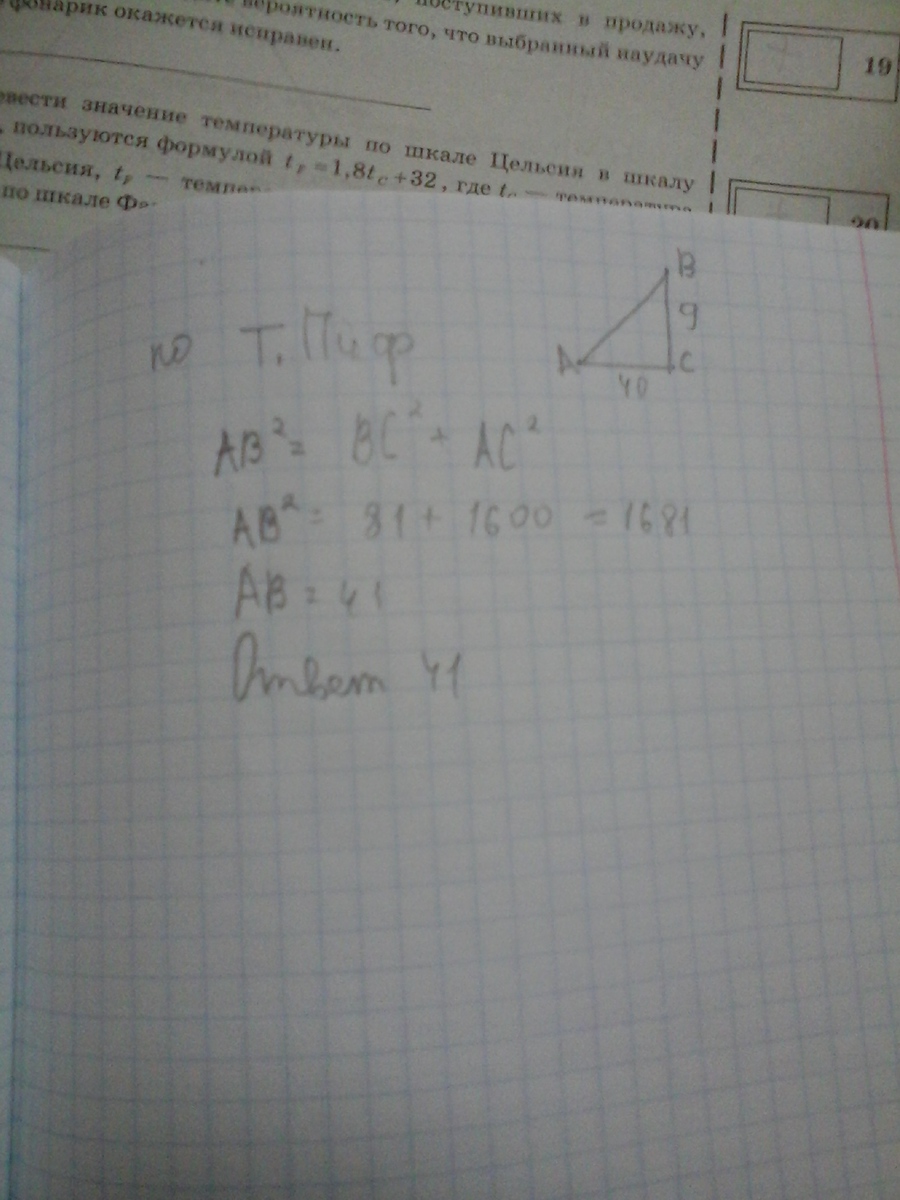 поступивших в продажу,
вероятность того, что выбранный наудачу
фонарик окажется исправен.
19
евести значение температуры по шкале Цельсия в шкалу
, пользуются формулой t_F = 1,8t_C + 32, где t_C — температура
Цельсия, t_F —
по шкале
20
B
9
A
C
40
по Т. Пиф
AB² = BC² + AC²
AB² = 81 + 1600 = 1681
AB = 41
Ответ 41